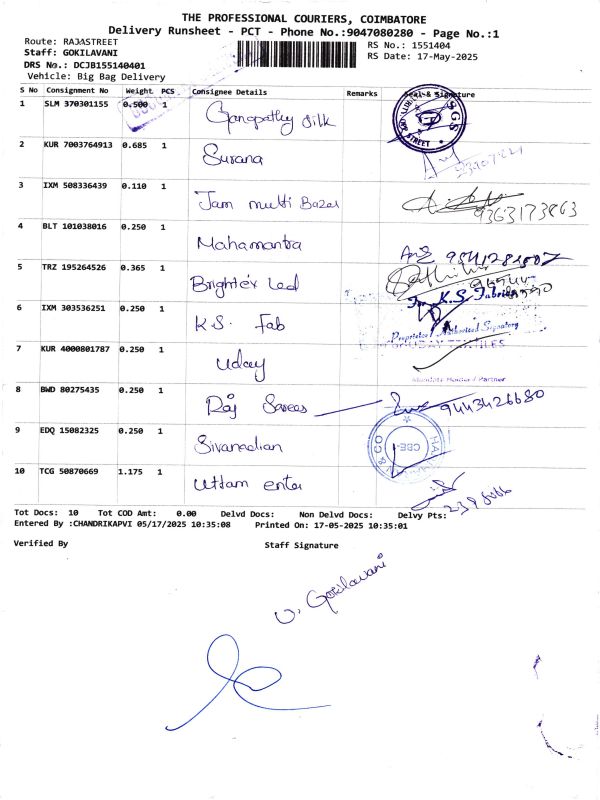 THE PROFESSIONAL COURIERS, COIMBATORE
Delivery Runsheet - PCT - Phone No.:9047080280 - Page No.:1
Route: RAJASTREET
RS No.: 1551404
Staff: GOKILAVANI
RS Date: 17-May-2025
DRS No.: DCJB155140401
Vehicle: Big Bag Delivery
S No Consignment No Weight PCS Consignee Details Remarks Seal & Signature
1 SLM 370301155 0.500 1 Ganapathy Silk
SGS
STREET
2 KUR 7003764913 0.685 1 Surana
3 IXM 508336439 0.110 1 Jam multi Bazar 9363173863
4 BLT 101038016 0.250 1 Mahamantra
5 TRZ 195264526 0.365 1 Brighter Led
For K.S. Fabrics
6 IXM 303536251 0.250 1 K.S. Fab
Proprietor / Authorised Signatory
7 KUR 4000801787 0.250 1 Uday
UDAY TEXTILES
Partner
8 BWD 80275435 0.250 1 Raj Sarees 9443426680
9 EDQ 15082325 0.250 1 Sivanadian
& CO
CBE
10 TCG 50870669 1.175 1 Uttam enter
Tot Docs: 10 Tot COD Amt: 0.00 Delvd Docs: Non Delvd Docs: Delvy Pts:
Entered By :CHANDRIKAPVI 05/17/2025 10:35:08 Printed On: 17-05-2025 10:35:01
Verified By Staff Signature
V. Gokilavani